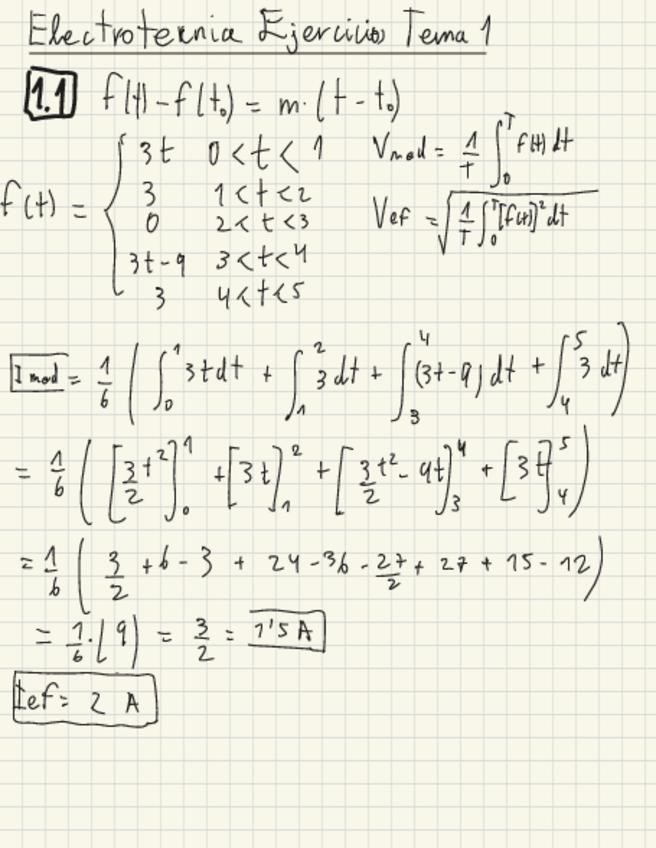 Electrotecnia Ejercicios Tema 1
1.1 f(t) - f(t₀) = m · (t - t₀)
f(t) = { 3t 0 < t < 1
3 1 < t < 2
0 2 < t < 3
3t - 9 3 < t < 4
3 4 < t < 5
V med = 1/T ∫₀ᵀ f(t) dt
V ef = √(1/T ∫₀ᵀ [f(t)]² dt)
I med = 1/6 ( ∫₀¹ 3t dt + ∫₁² 3 dt + ∫₃⁴ (3t - 9) dt + ∫₄⁵ 3 dt )
= 1/6 ( [3/2 t²]₀¹ + [3t]₁² + [3/2 t² - 9t]₃⁴ + [3t]₄⁵ )
= 1/6 ( 3/2 + 6 - 3 + 24 - 36 - 27/2 + 27 + 15 - 12 )
= 1/6 · (9) = 3/2 = 1'5 A
Ief = 2 A